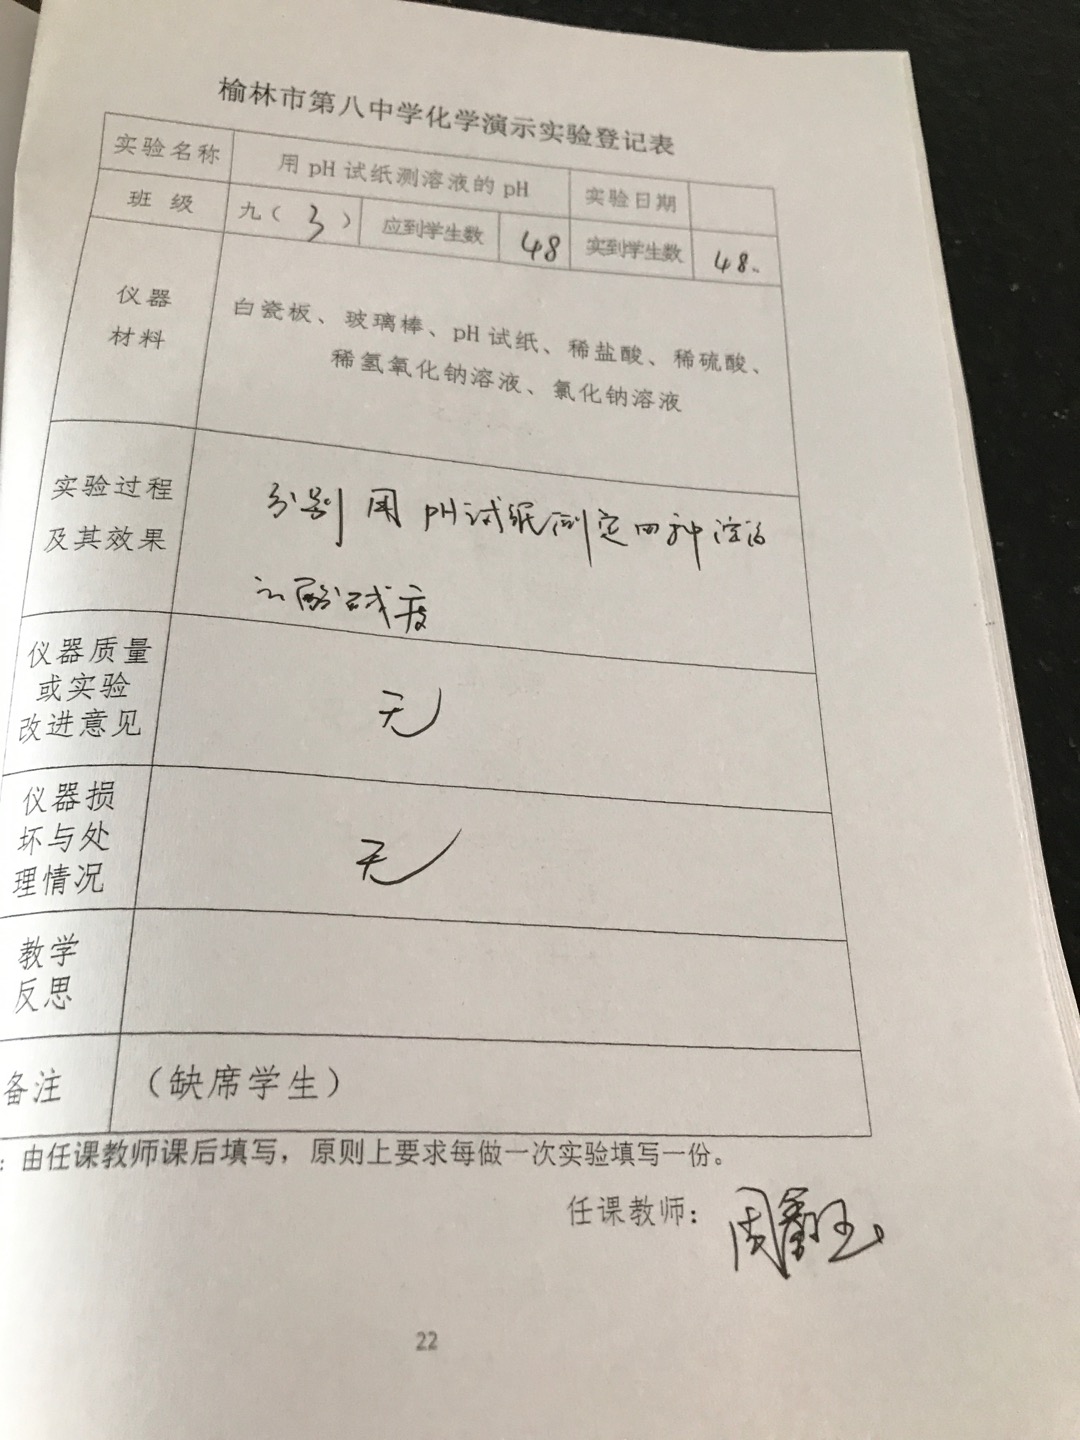 榆林市第八中学化学演示实验登记表
实验名称 用 pH 试纸测溶液的 pH 实验日期
班 级 九（ 3 ） 应到学生数 48 实到学生数 48.
仪器
材料
白瓷板、玻璃棒、pH 试纸、稀盐酸、稀硫酸、
稀氢氧化钠溶液、氯化钠溶液
实验过程
及其效果
分别用 pH试纸测定四种溶液
酸碱度
仪器质量
或实验
改进意见
无
仪器损
坏与处
理情况
无
教学
反思
备注 （缺席学生）
：由任课教师课后填写，原则上要求每做一次实验填写一份。
任课教师： 周
22